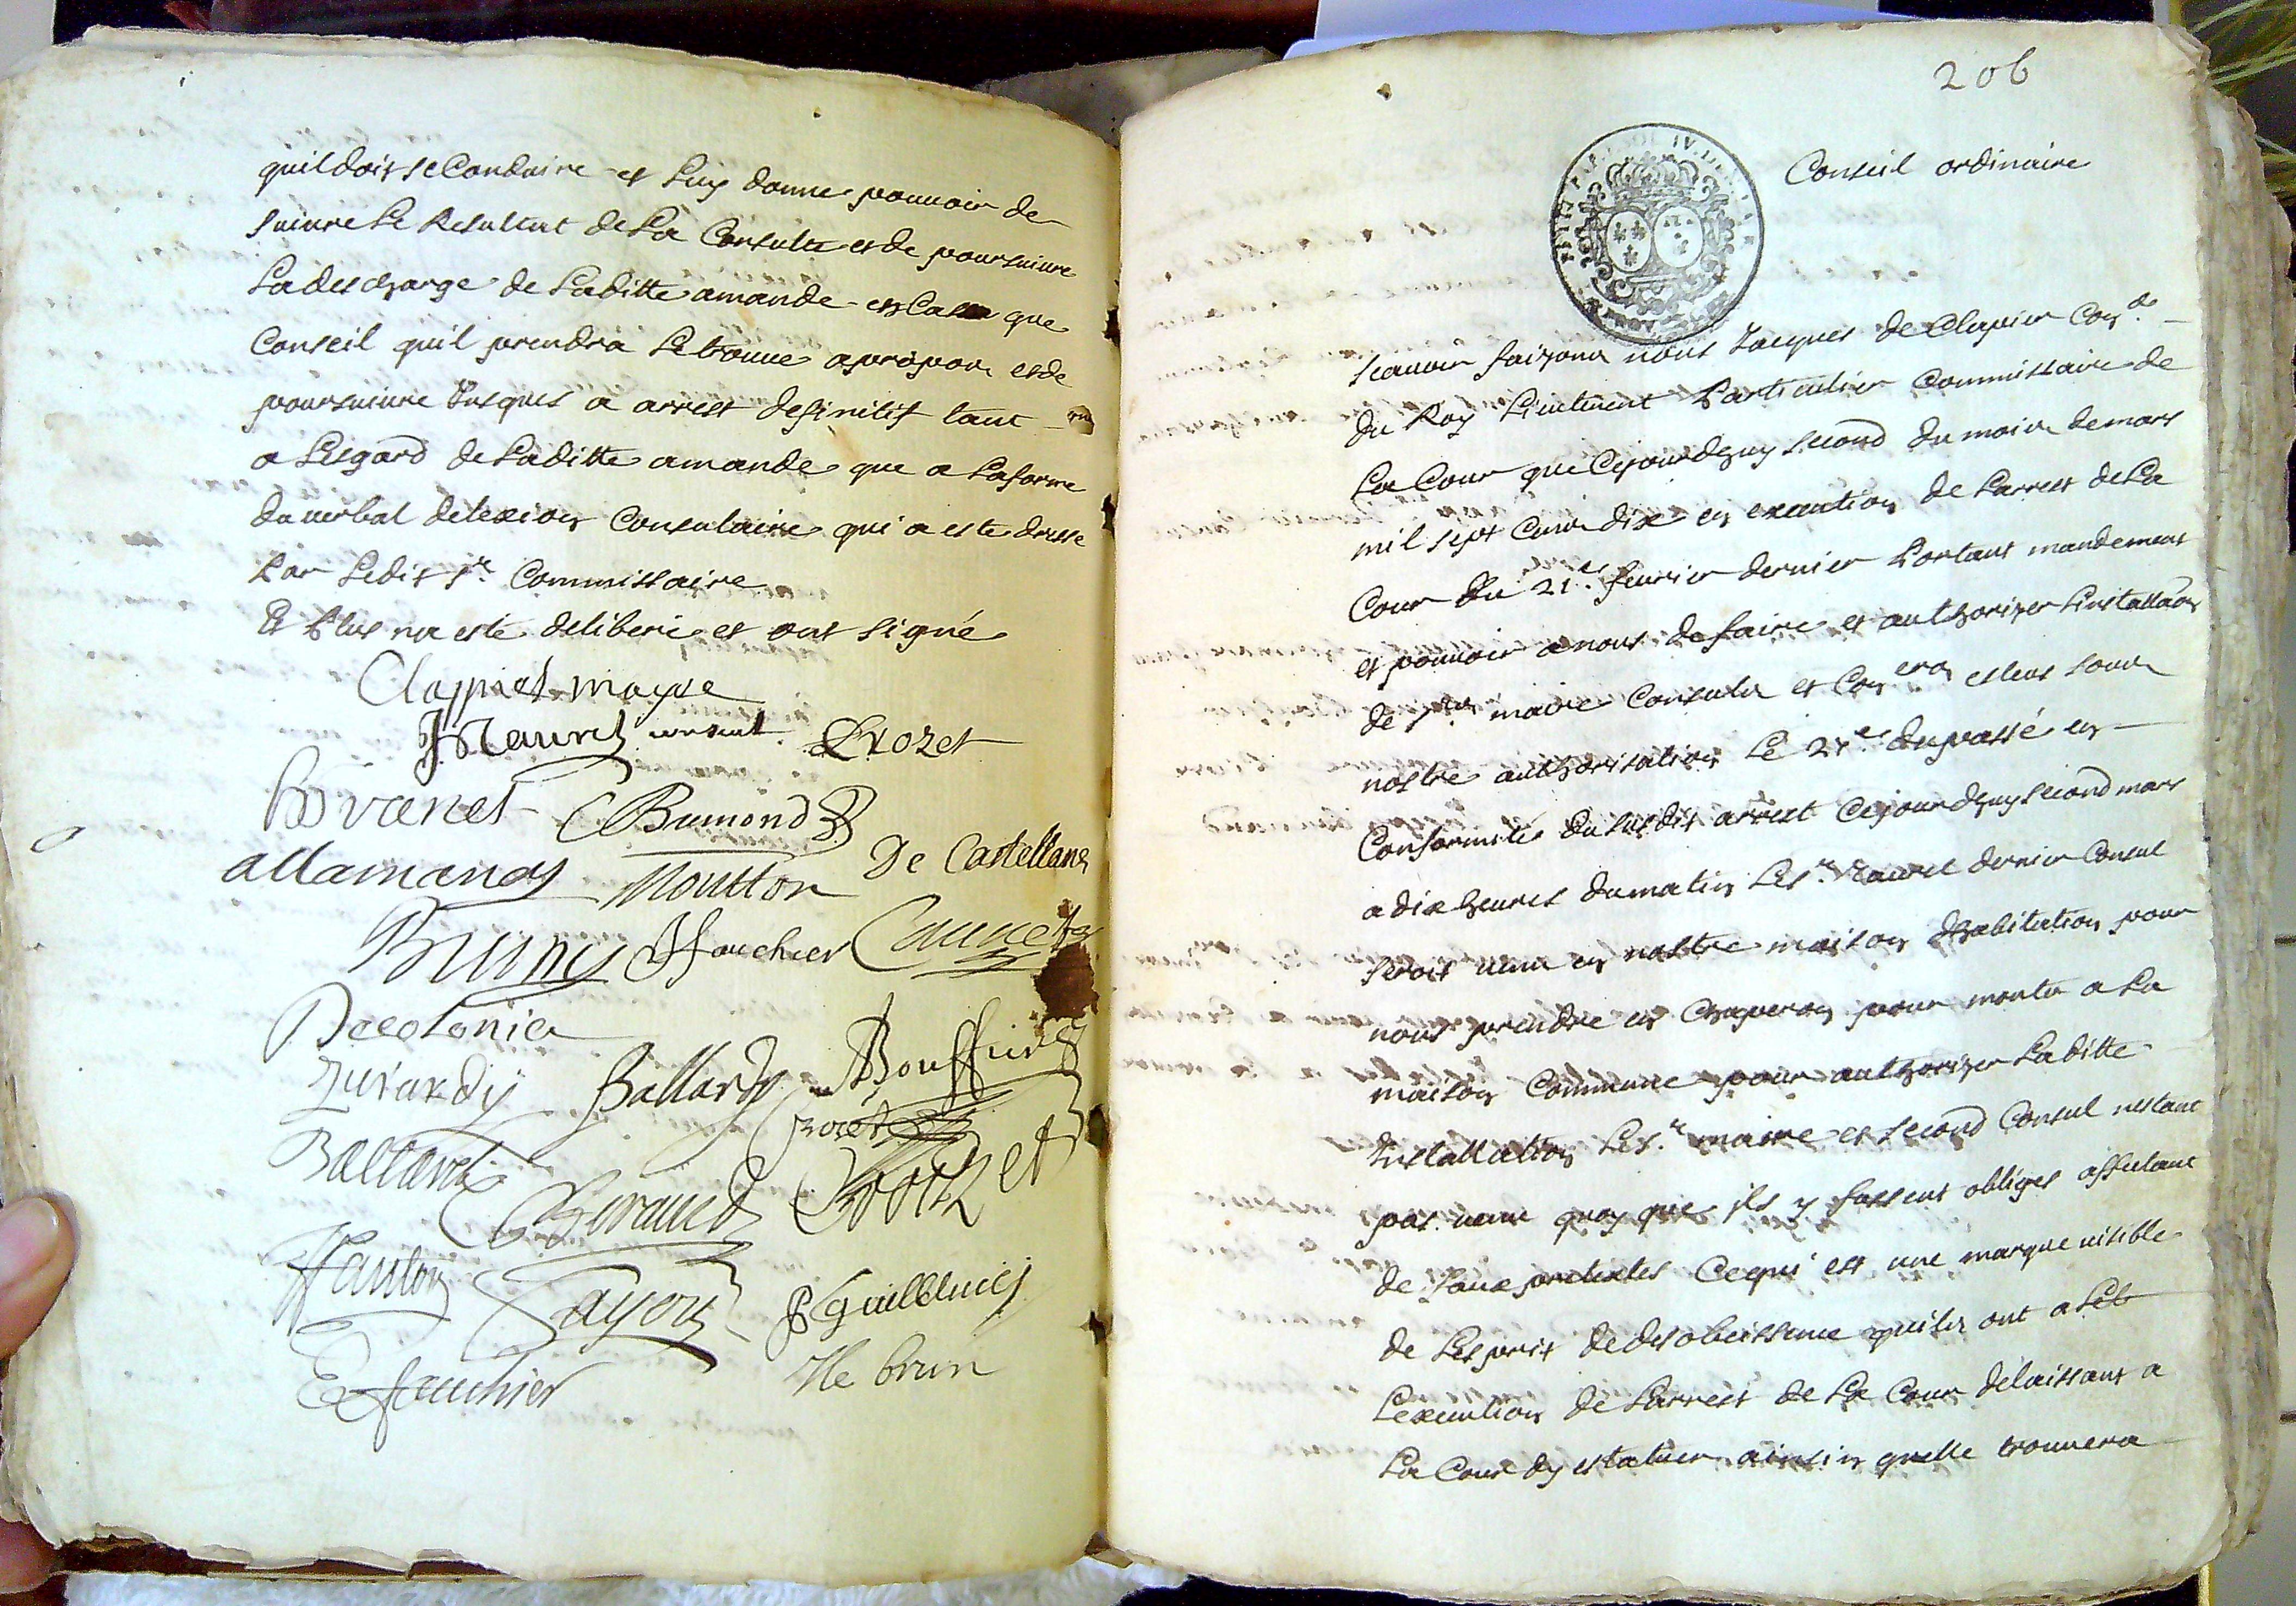 quil doit se Conduire et Luy donne pouuoir de
suiure Le Resultat de La Consulte et de poursuiure
La descharge de Laditte amande en Cas que
Conseil quil prendra Le trouue apropos et de
poursuiure Jusques a arrest definitif tant
a Lesgard de Laditte amande que a La forme
du verbal delexion Consulaire qui a este dresse
Par Ledit sr. Commissaire
Et Plus na esté deliberé et ont signé
Clappiers mayre
J Maurel consul Crozet
Bovanet CBrumond
allamandy Moutton De Castellane
Bruny Jfauchier Caunet
Decolonia
Jurardy Ballardy Bouffier
Baltard
Giraud
ffanton Sayou P Guillelmy
E fauchier H le brun
206
Conseil ordinaire
scauoir faizons nous Jacques de Clapier Coner.
du Roy Lieutenent Particulier Commissaire de
La Cour que Cejourdhuy second du mois de mars
mil sept Cens dix en execution de Larrest de La
Cour du 21e. feurier dernier Portant mandement
et pouuoir a nous de faire et authoriser Linstallaon
de srs maire Consuls et Coners esleus sous
nostre authorisation Le 25e du passé en
Conformité du susdit arrest Cejourdhuy second mars
a dix heures du matin Le sr. Maurel dernier Consul
seroit venu en nostre maison dhabitation pour
nous prendre en Chaperon pour monter a La
maison Commune pour authoriser Laditte
Installation Les sr. maire et second Consul nestant
pas venu quoy que ils y fussent obliges affectant
de faux pretextes Cequi est une marque visible
de Lesprit de desobeissance quils ont a
Lexecution de Larrest de La Cour delaissant a
La Cour dy estatuer ainsin quelle trouuera